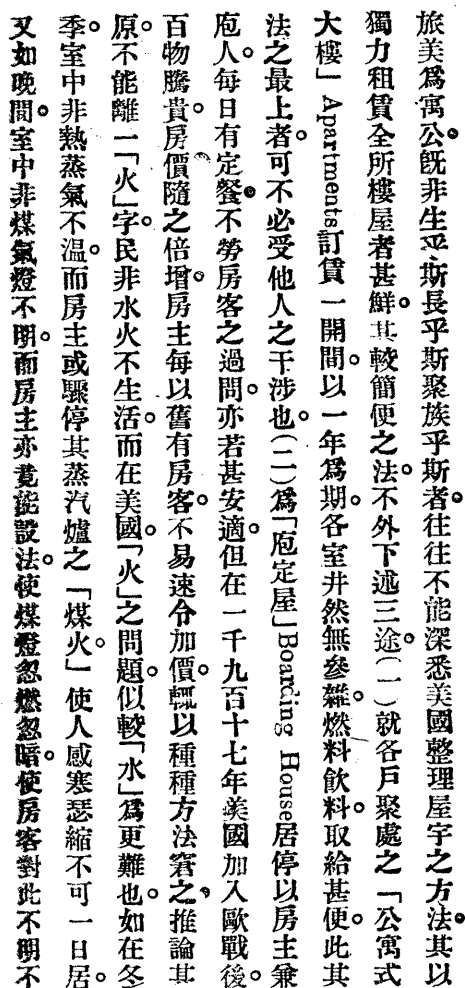 旅美爲寓公。旣非生乎斯長乎斯聚族乎斯者往往不能深悉美國整理屋宇之方法。其以
獨力租賃全所樓屋者甚鮮。其較簡便之法。不外下述三途。(一)就各戶聚處之「公寓式
大樓」Apartments訂賃一開間。以一年爲期。各室井然無參雜。燃料飲料。取給甚便。此其
法之最上者。可不必受他人之干涉也。(二)爲「庖定屋」Boarding House居停以房主兼
庖人。每日有定餐。不勞房客之過問。亦若甚安適。但在一千九百十七年美國加入歐戰後。
百物騰貴。房價隨之倍增。房主每以舊有房客。不易速令加價。輒以種種方法窘之。推論其
原。不能離一「火」字。民非水火不生活。而在美國。「火」之問題。似較「水」爲更難也。如在冬
季。室中非熱蒸氣不溫。而房主或驟停其蒸汽爐之「煤火」使人感寒瑟縮不可一日居。
又如晚間。室中非煤氣燈不明。而房主亦竟能設法。使煤燈忽燃忽暗。使房客對此不明不